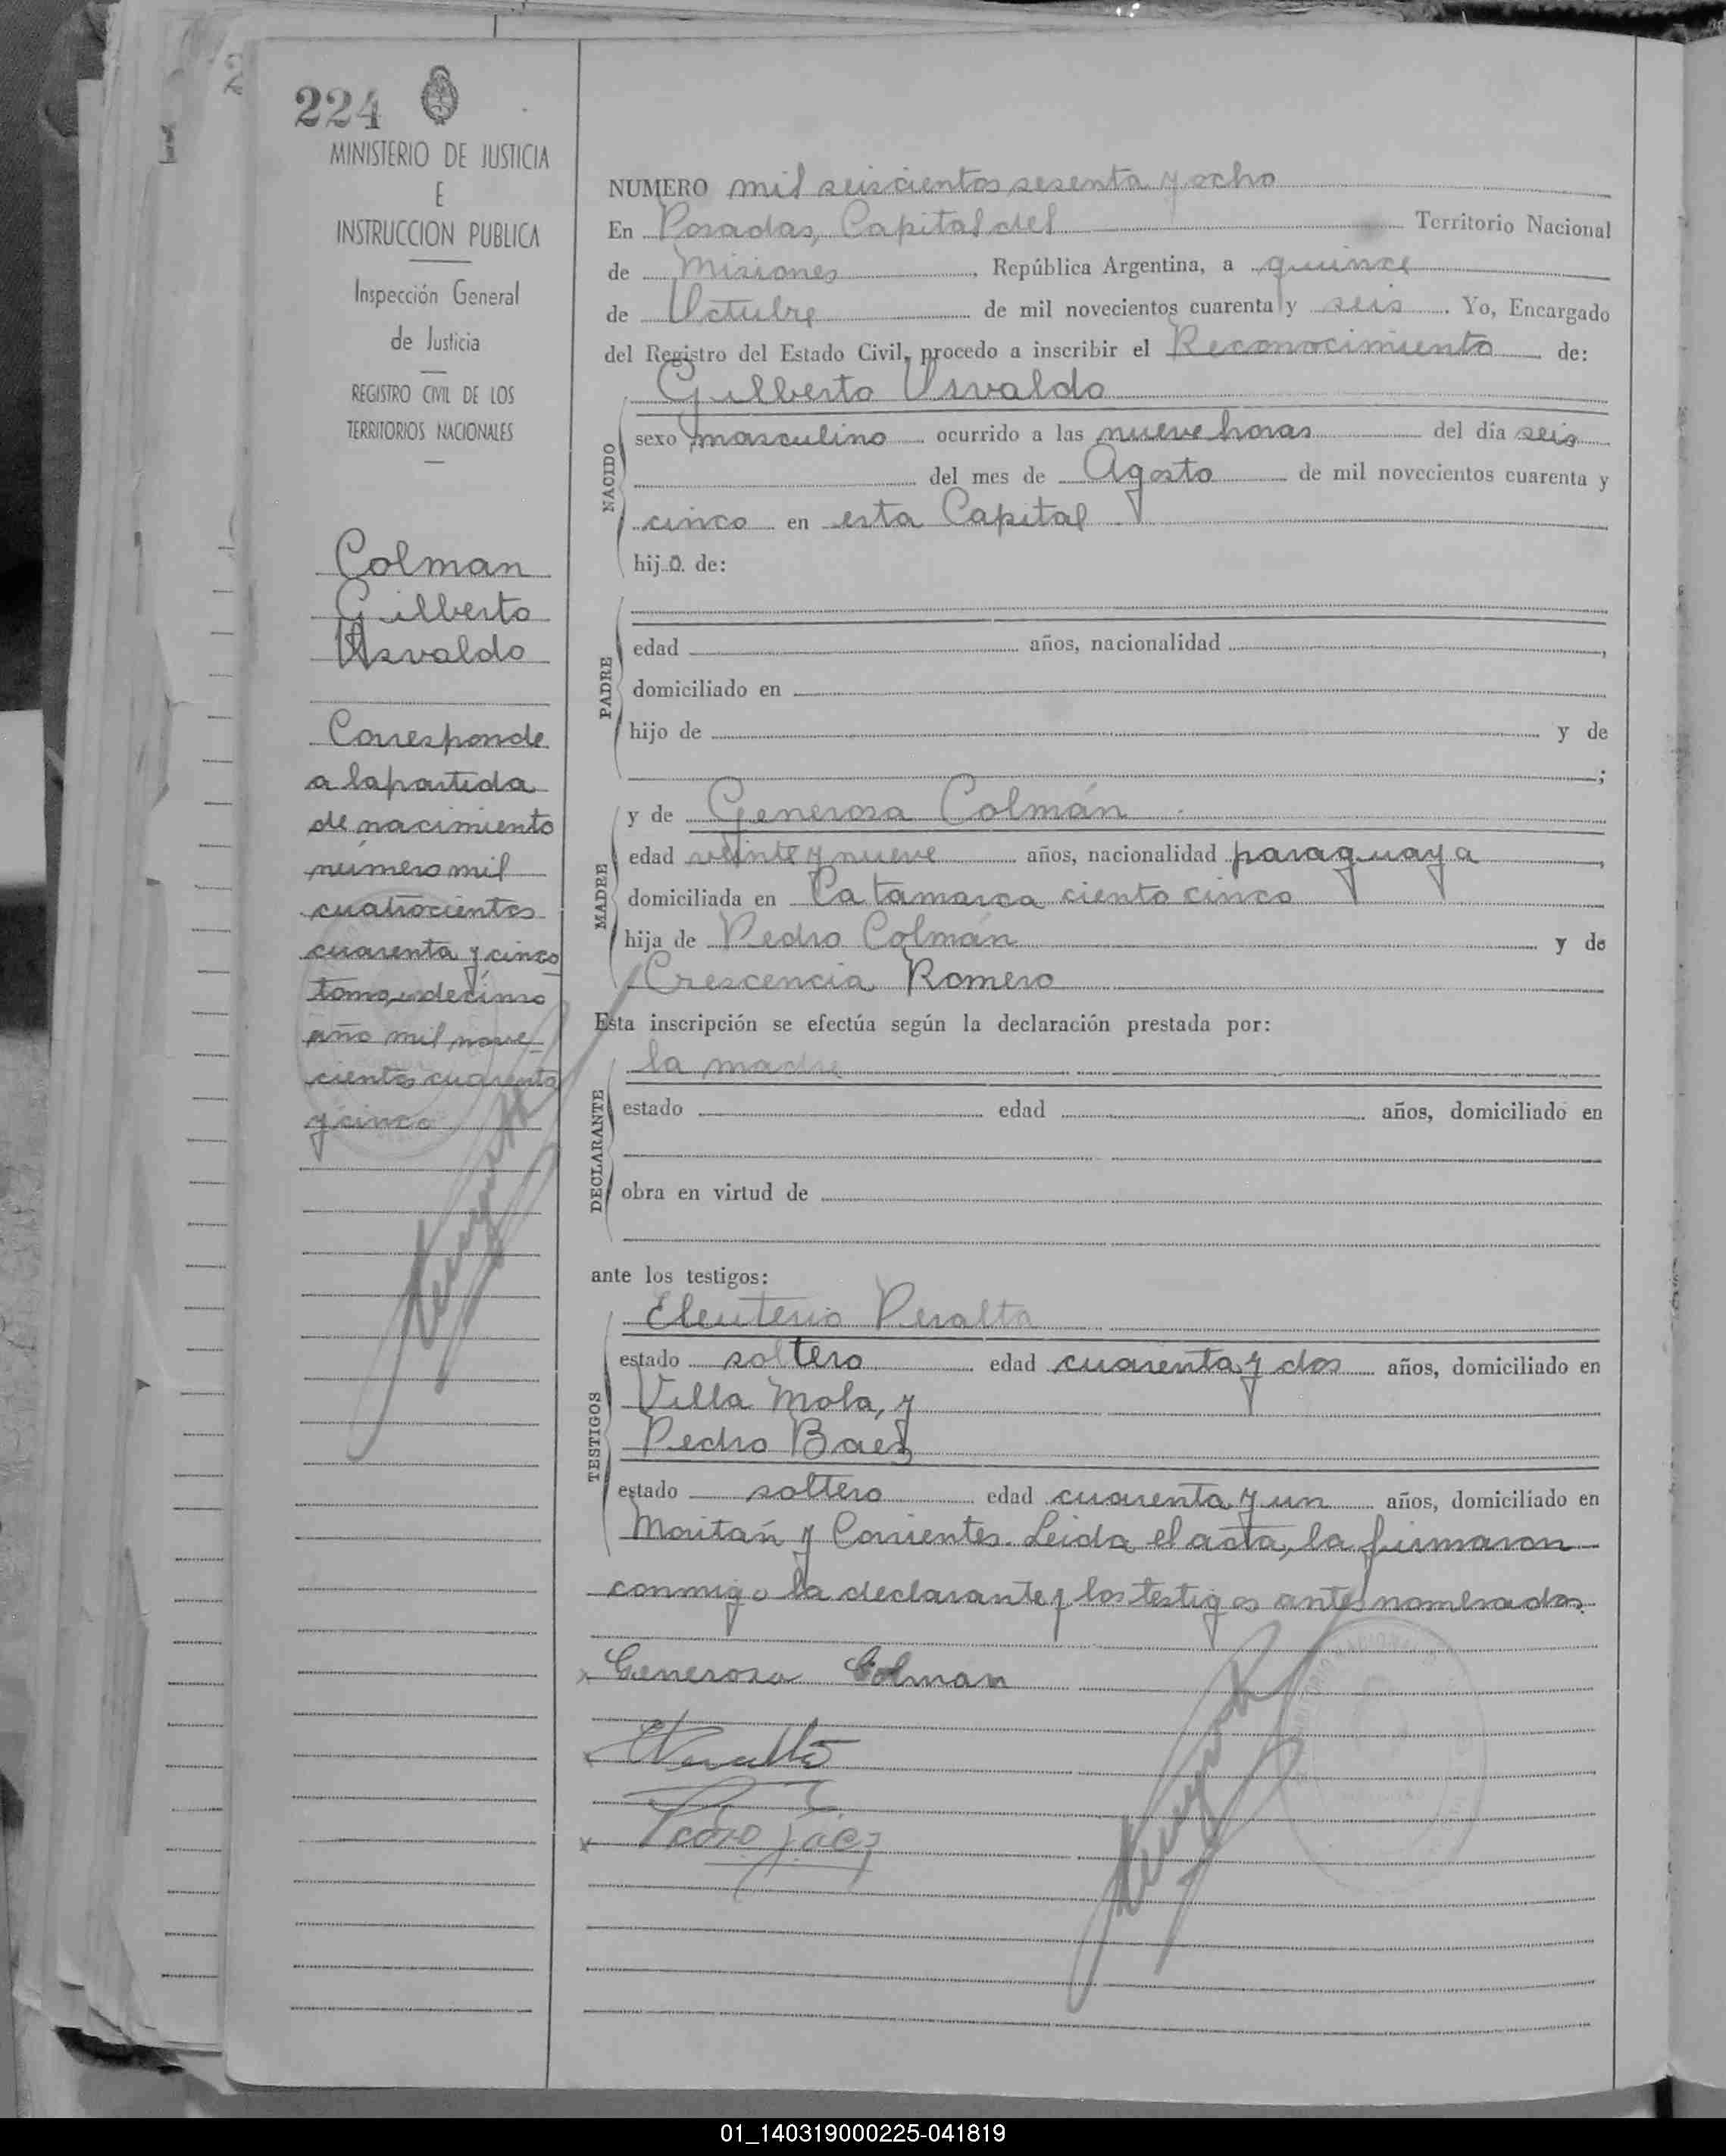 224
MINISTERIO DE JUSTICIA
E
INSTRUCCION PUBLICA
Inspección General
de Justicia
REGISTRO CIVIL DE LOS
TERRITORIOS NACIONALES
Colman
Gilberto
Osvaldo
Corresponde
a la partida
de nacimiento
número mil
cuatrocientos
cuarenta y cinco
tomo undécimo
año mil nove-
cientos cuarenta
y cinco
NUMERO mil seiscientos sesenta y ocho
En Posadas, Capital del Territorio Nacional
de Misiones, República Argentina, a quince
de Octubre de mil novecientos cuarenta y seis. Yo, Encargado
del Registro del Estado Civil, procedo a inscribir el Reconocimiento de:
Gilberto Osvaldo
NACIDO
sexo masculino ocurrido a las nueve horas del día seis
del mes de Agosto de mil novecientos cuarenta y
cinco en esta Capital
hijo de:
PADRE
edad años, nacionalidad ,
domiciliado en
hijo de y de
;
MADRE
y de Generosa Colmán
edad veinte y nueve años, nacionalidad paraguaya,
domiciliada en Catamarca ciento cinco
hija de Pedro Colmán y de
Crescencia Romero
Esta inscripción se efectúa según la declaración prestada por:
la madre
DECLARANTE
estado edad años, domiciliado en
obra en virtud de
ante los testigos:
Eleuterio Peralta
TESTIGOS
estado soltero edad cuarenta y dos años, domiciliado en
Villa Mola, y
Pedro Baez
estado soltero edad cuarenta y un años, domiciliado en
Moritán y Corrientes. Leida el acta, la firmaron
conmigo la declarante y los testigos antes nombrados.
Generosa Colman
Peralta
Pedro Báez
01_140319000225-041819